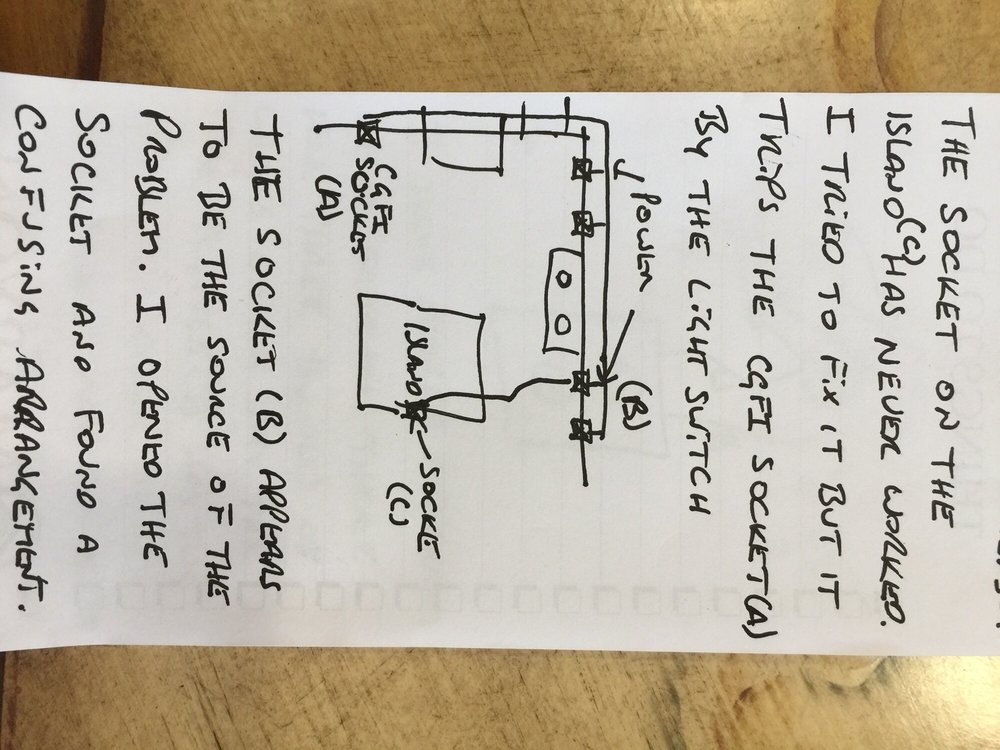 THE SOCKET ON THE
ISLAND (C) HAS NEVER WORKED.
I TRIED TO FIX IT BUT IT
TRIPS THE CGFI SOCKET (A)
BY THE LIGHT SWITCH
POWER
(B)
CGFI
SOCKET
(A)
ISLAND
SOCKE
(C)
THE SOCKET (B) APPEARS
TO BE THE SOURCE OF THE
PROBLEM. I OPENED THE
SOCKET AND FOUND A
CONFUSING ARRANGEMENT.